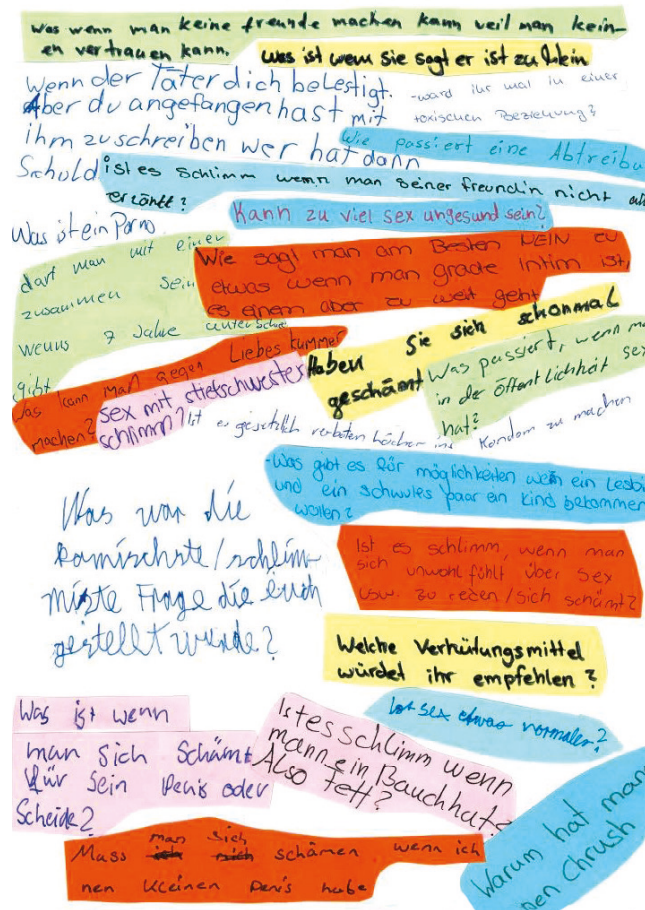 Was wenn man keine freunde machen kann weil man kein-
en vertrauen kann.
was ist wem sie sagt er ist zu klein
wenn der Täter dich belestigt.
Aber du angefangen hast mit
ihm zu schreiben wer hat dann
Schuld
-ward ihr mal in einer
toxischen Beziehung?
Wie passiert eine Abtreibu
ist es schlimm wemn man seiner freundin nicht all
erzählt?
Kann zu viel sex ungesund sein?
Was ist ein Porno
darf man mit einer
zusammen sein
wenns 7 Jahre unterschie
gibt
Wie sagt man am Besten NEIN zu
etwas wenn man grade Intim ist,
es einem aber zu weit geht
Was kann man gegen Liebeskummer
machen?
Haben Sie sich schonmal
geschämt
Was passiert, wenn ma
in der öffentlichkeit sex
hat?
sex mit stiefschwester
schlimm?
Ist es gesetzlich verboten löcher ins Kondom zu machen
-Was gibt es für möglichkeiten wenn ein Lesbi
und ein schwules paar ein Kind bekommen
wollen?
Was war die
komischste/schlim-
mste Frage die euch
gestellt wurde?
Ist es schlimm, wenn man
sich unwohl fühlt über sex
usw. zu reden/sich schämt?
Welche Verhütungsmittel
würdet ihr empfehlen?
Ist sex etwas normales?
Was ist wenn
man sich schämt
für sein Penis oder
Scheide?
Ist es schlimm wenn
mann ein Bauch hat
Also fett?
Muss man sich schämen wenn ich
nen kleinen Penis habe
Warum hat man
nen Chrush